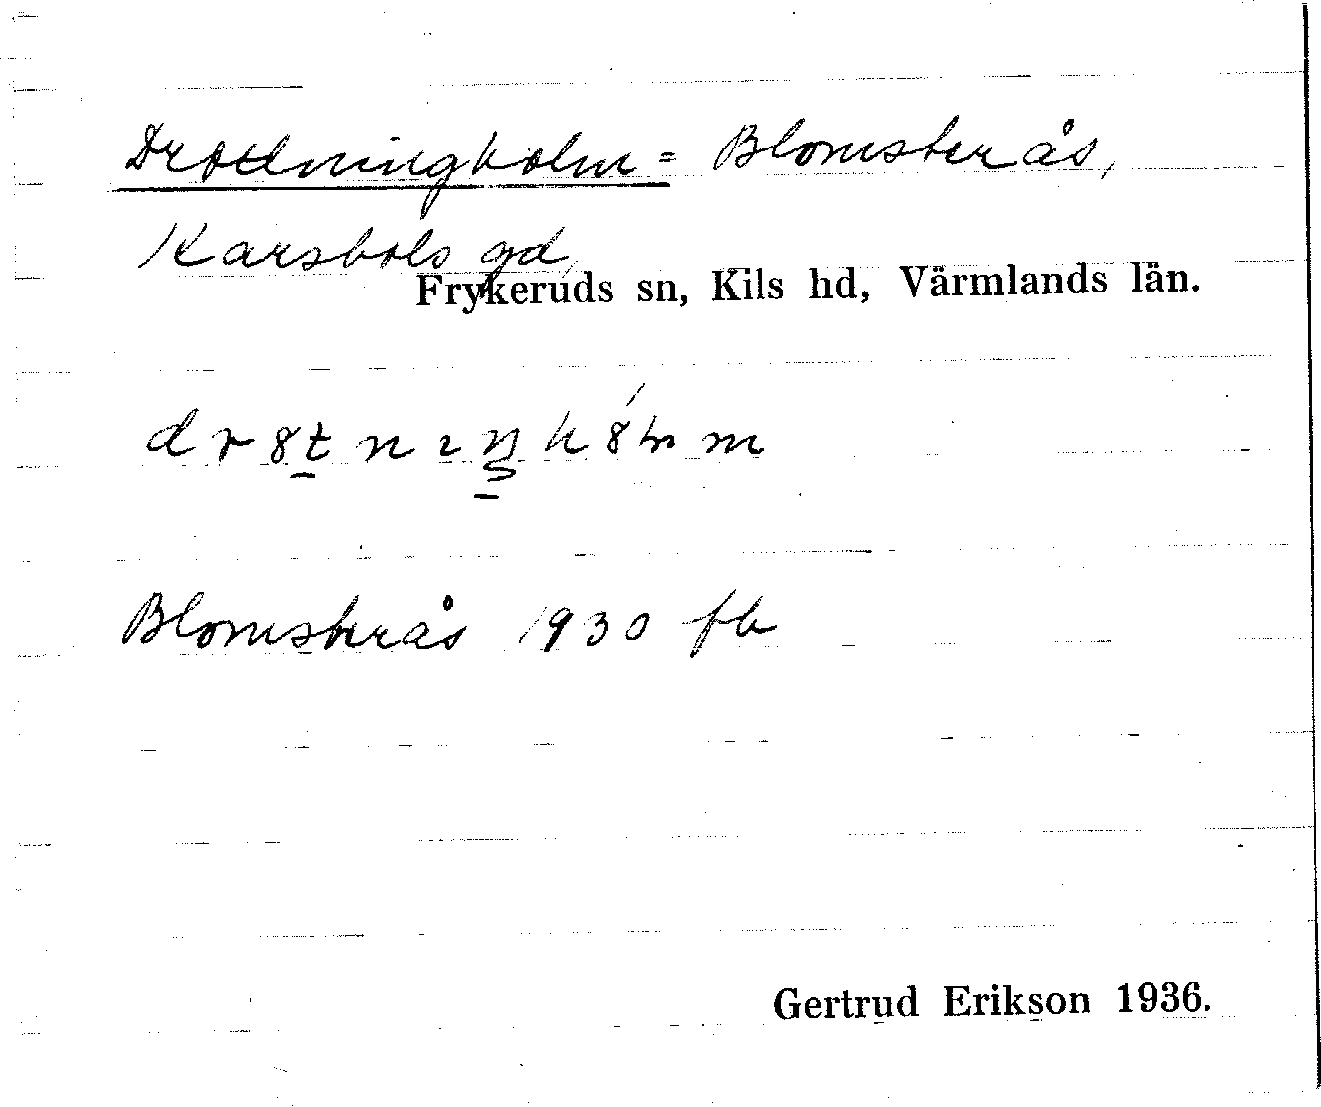 Drottningholm = Blomsterås,
Karsbols gd,
Frykeruds sn, Kils hd, Värmlands län.
Blomsterås 1930 fb
Gertrud Erikson 1936.